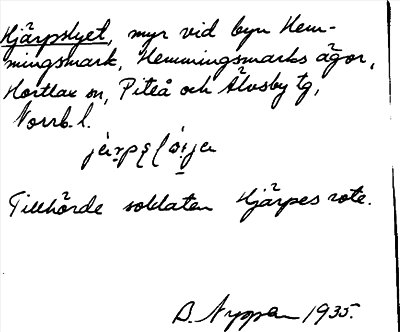 Hjärpslyet, myr vid byn Hem-
mingsmark, Hemmingsmarks ägor,
Hortlax sn, Piteå och Älvsby tg,
Norrb. l.
Tillhörde soldaten Hjärpes rote.
B. Nyppen 1935.